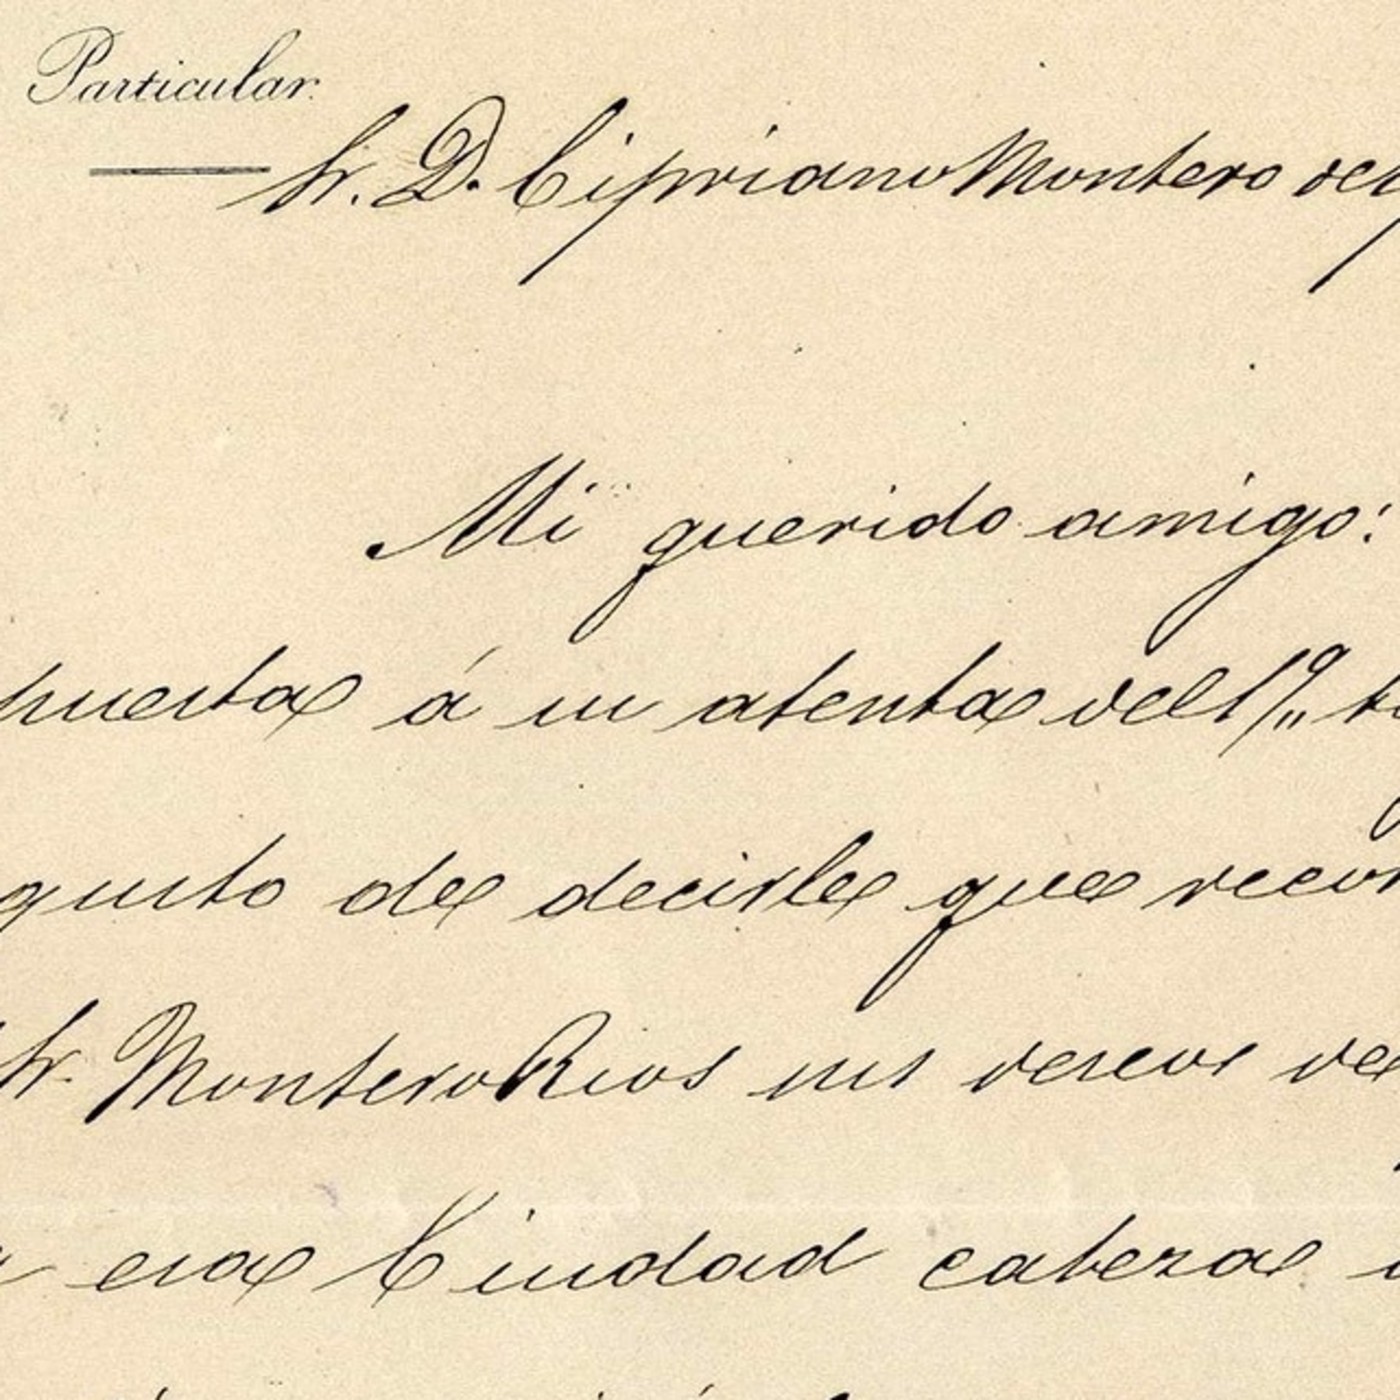 Particular.
Sr. D. Cipriano Montero
Mi querido amigo:
puesta á su atenta del 1º
gusto de decirle que
Sr. Montero Rios sus deseos de
esa Ciudad cabeza